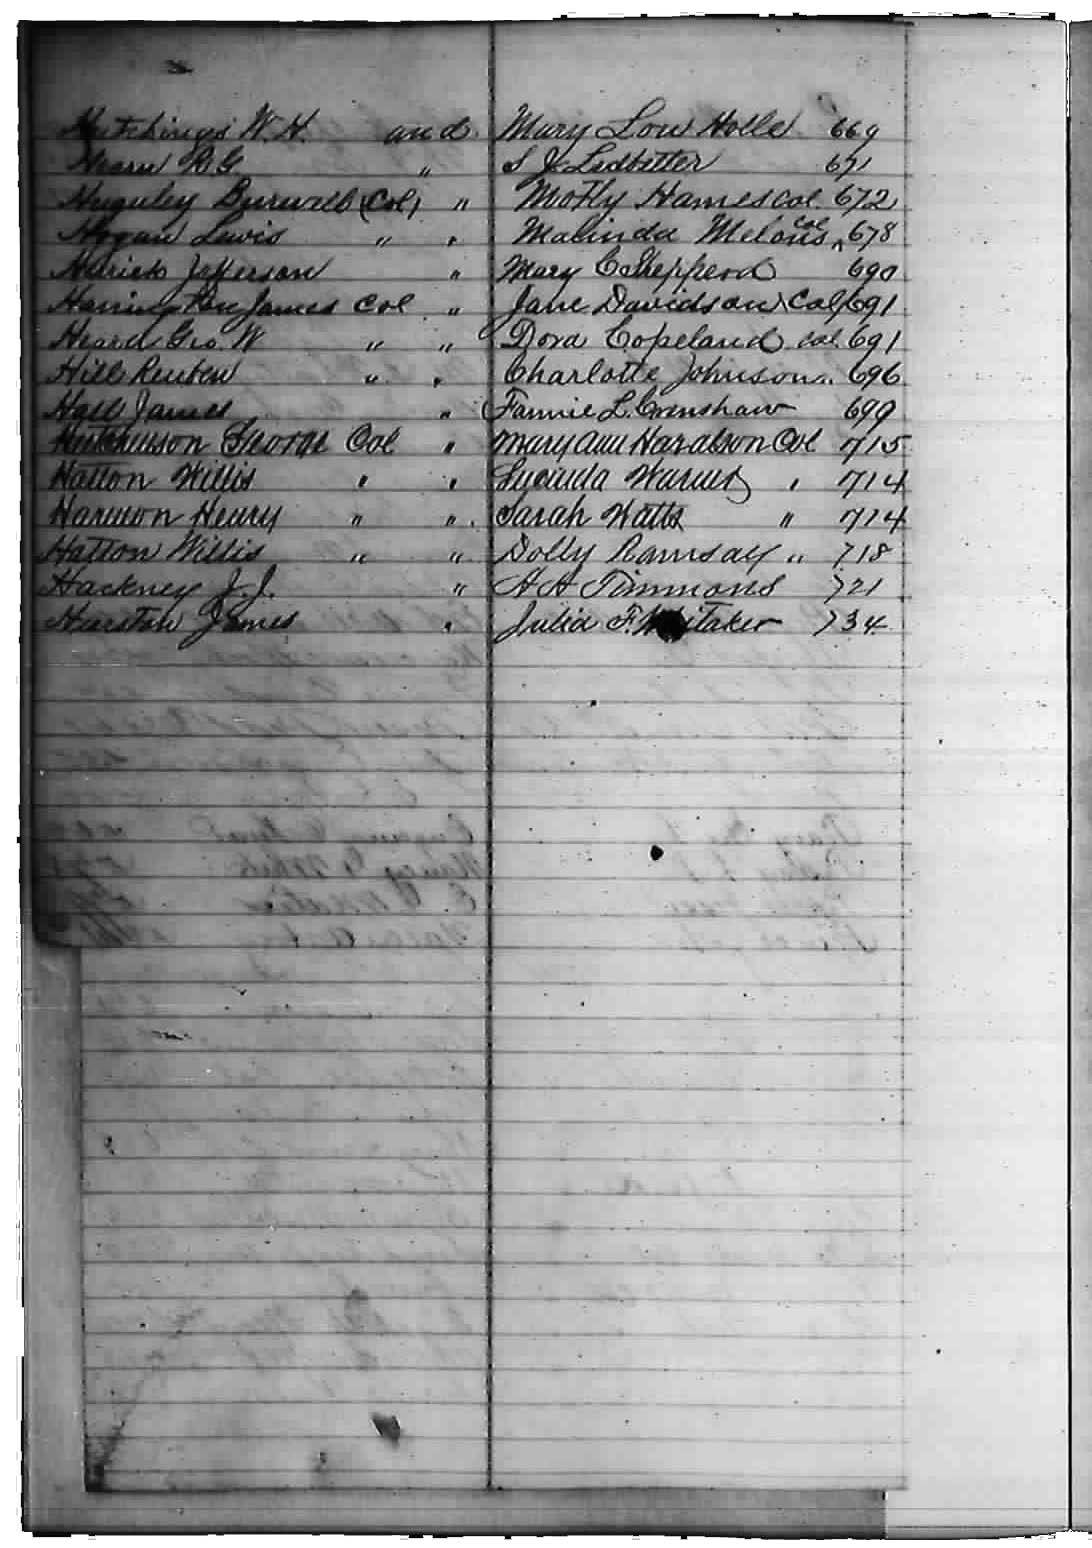 Hutchings W. H. and Mary Lou Holle 669
Hearn R G " S J Ledbetter 671
Huguley Burwell (Col) " Motly Hames col 672
Hogan Lewis " " Malinda Melons col 678
Jefferson " Mary C Shepperd 690
Harrington James Col " Jane Davidson (Col) 691
Heard Geo. W " " Dora Copeland col. 691
Hill Reuben " " Charlotte Johnson " 696
Hall James " Fannie L. Crenshaw 699
Hutchinson George Col " Mary Ann Haralson Col 715
Hatton Willis " " Lucinda " 714
Harmon Henry " " Sarah Watts " 714
Hatton Willis " " Dolly Ramsay " 718
Hackney J. J. " A A Timmons 721
Hairston James " Julia F. Whitaker 734